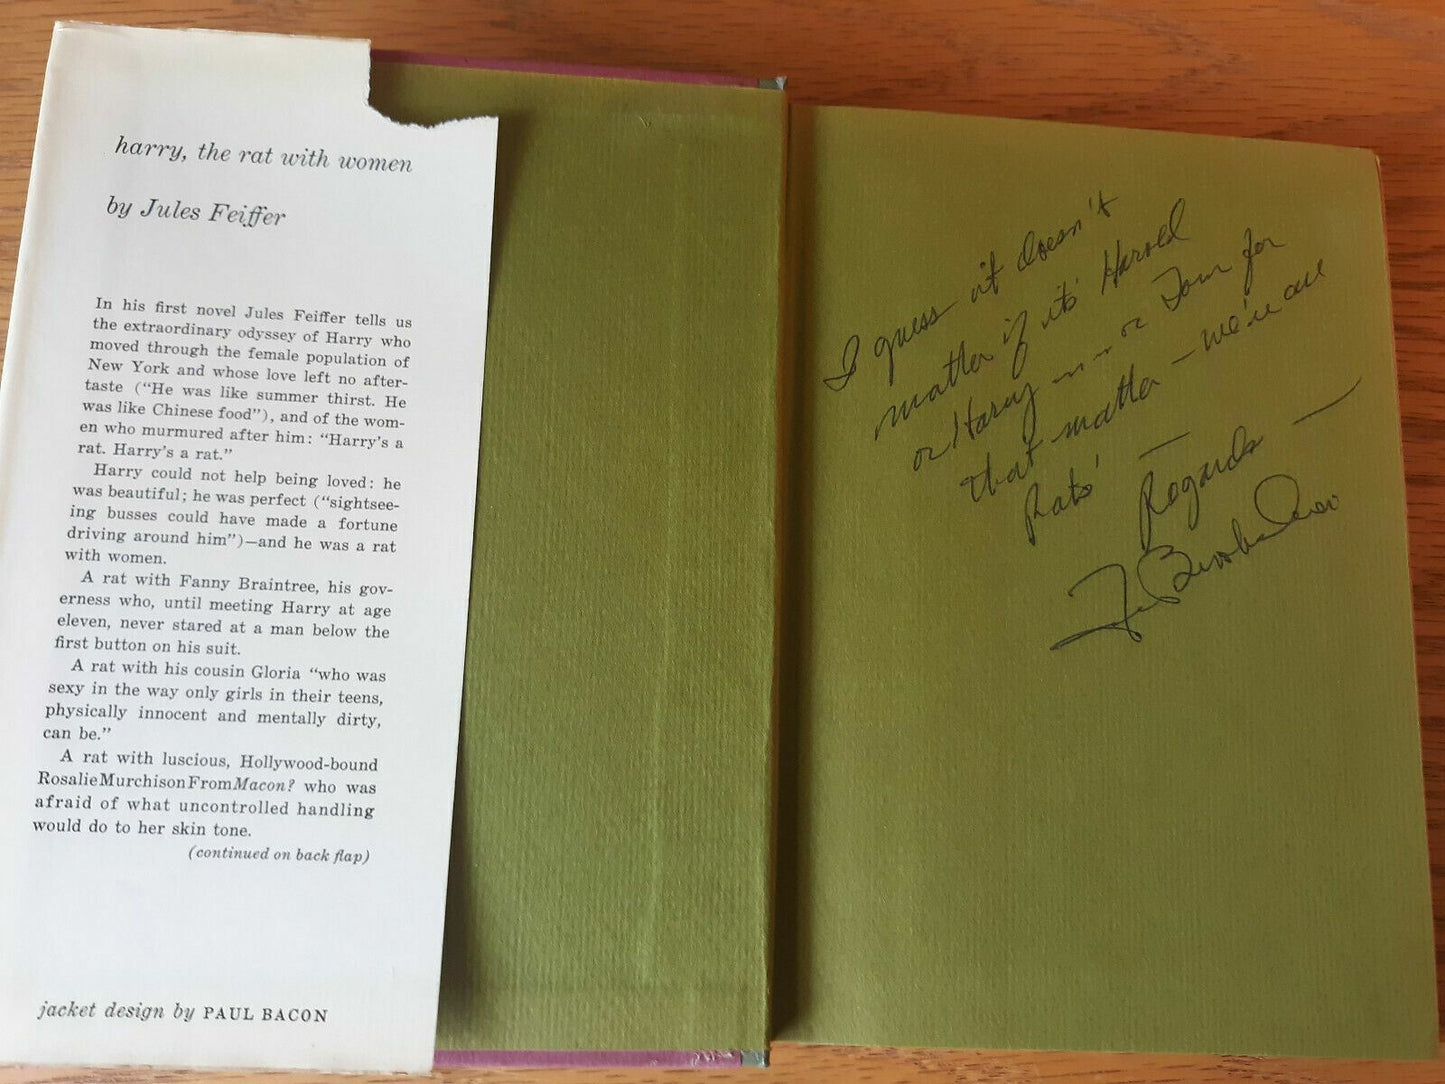 harry, the rat with women
by Jules Feiffer
In his first novel Jules Feiffer tells us
the extraordinary odyssey of Harry who
moved through the female population of
New York and whose love left no after-
taste (“He was like summer thirst. He
was like Chinese food”), and of the wom-
en who murmured after him: “Harry’s a
rat. Harry’s a rat.”
Harry could not help being loved: he
was beautiful; he was perfect (“sightsee-
ing busses could have made a fortune
driving around him”)—and he was a rat
with women.
A rat with Fanny Braintree, his gov-
erness who, until meeting Harry at age
eleven, never stared at a man below the
first button on his suit.
A rat with his cousin Gloria “who was
sexy in the way only girls in their teens,
physically innocent and mentally dirty,
can be.”
A rat with luscious, Hollywood-bound
RosalieMurchisonFromMacon? who was
afraid of what uncontrolled handling
would do to her skin tone.
(continued on back flap)
jacket design by PAUL BACON
I guess it doesn't
matter if its' Harold
or Harry — or Tom for
that matter — we're all
Rats' —
Regards —